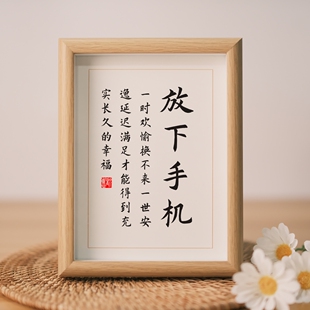 放下手机
一时欢愉换不来一世安
逸延迟满足才能得到充
实长久的幸福